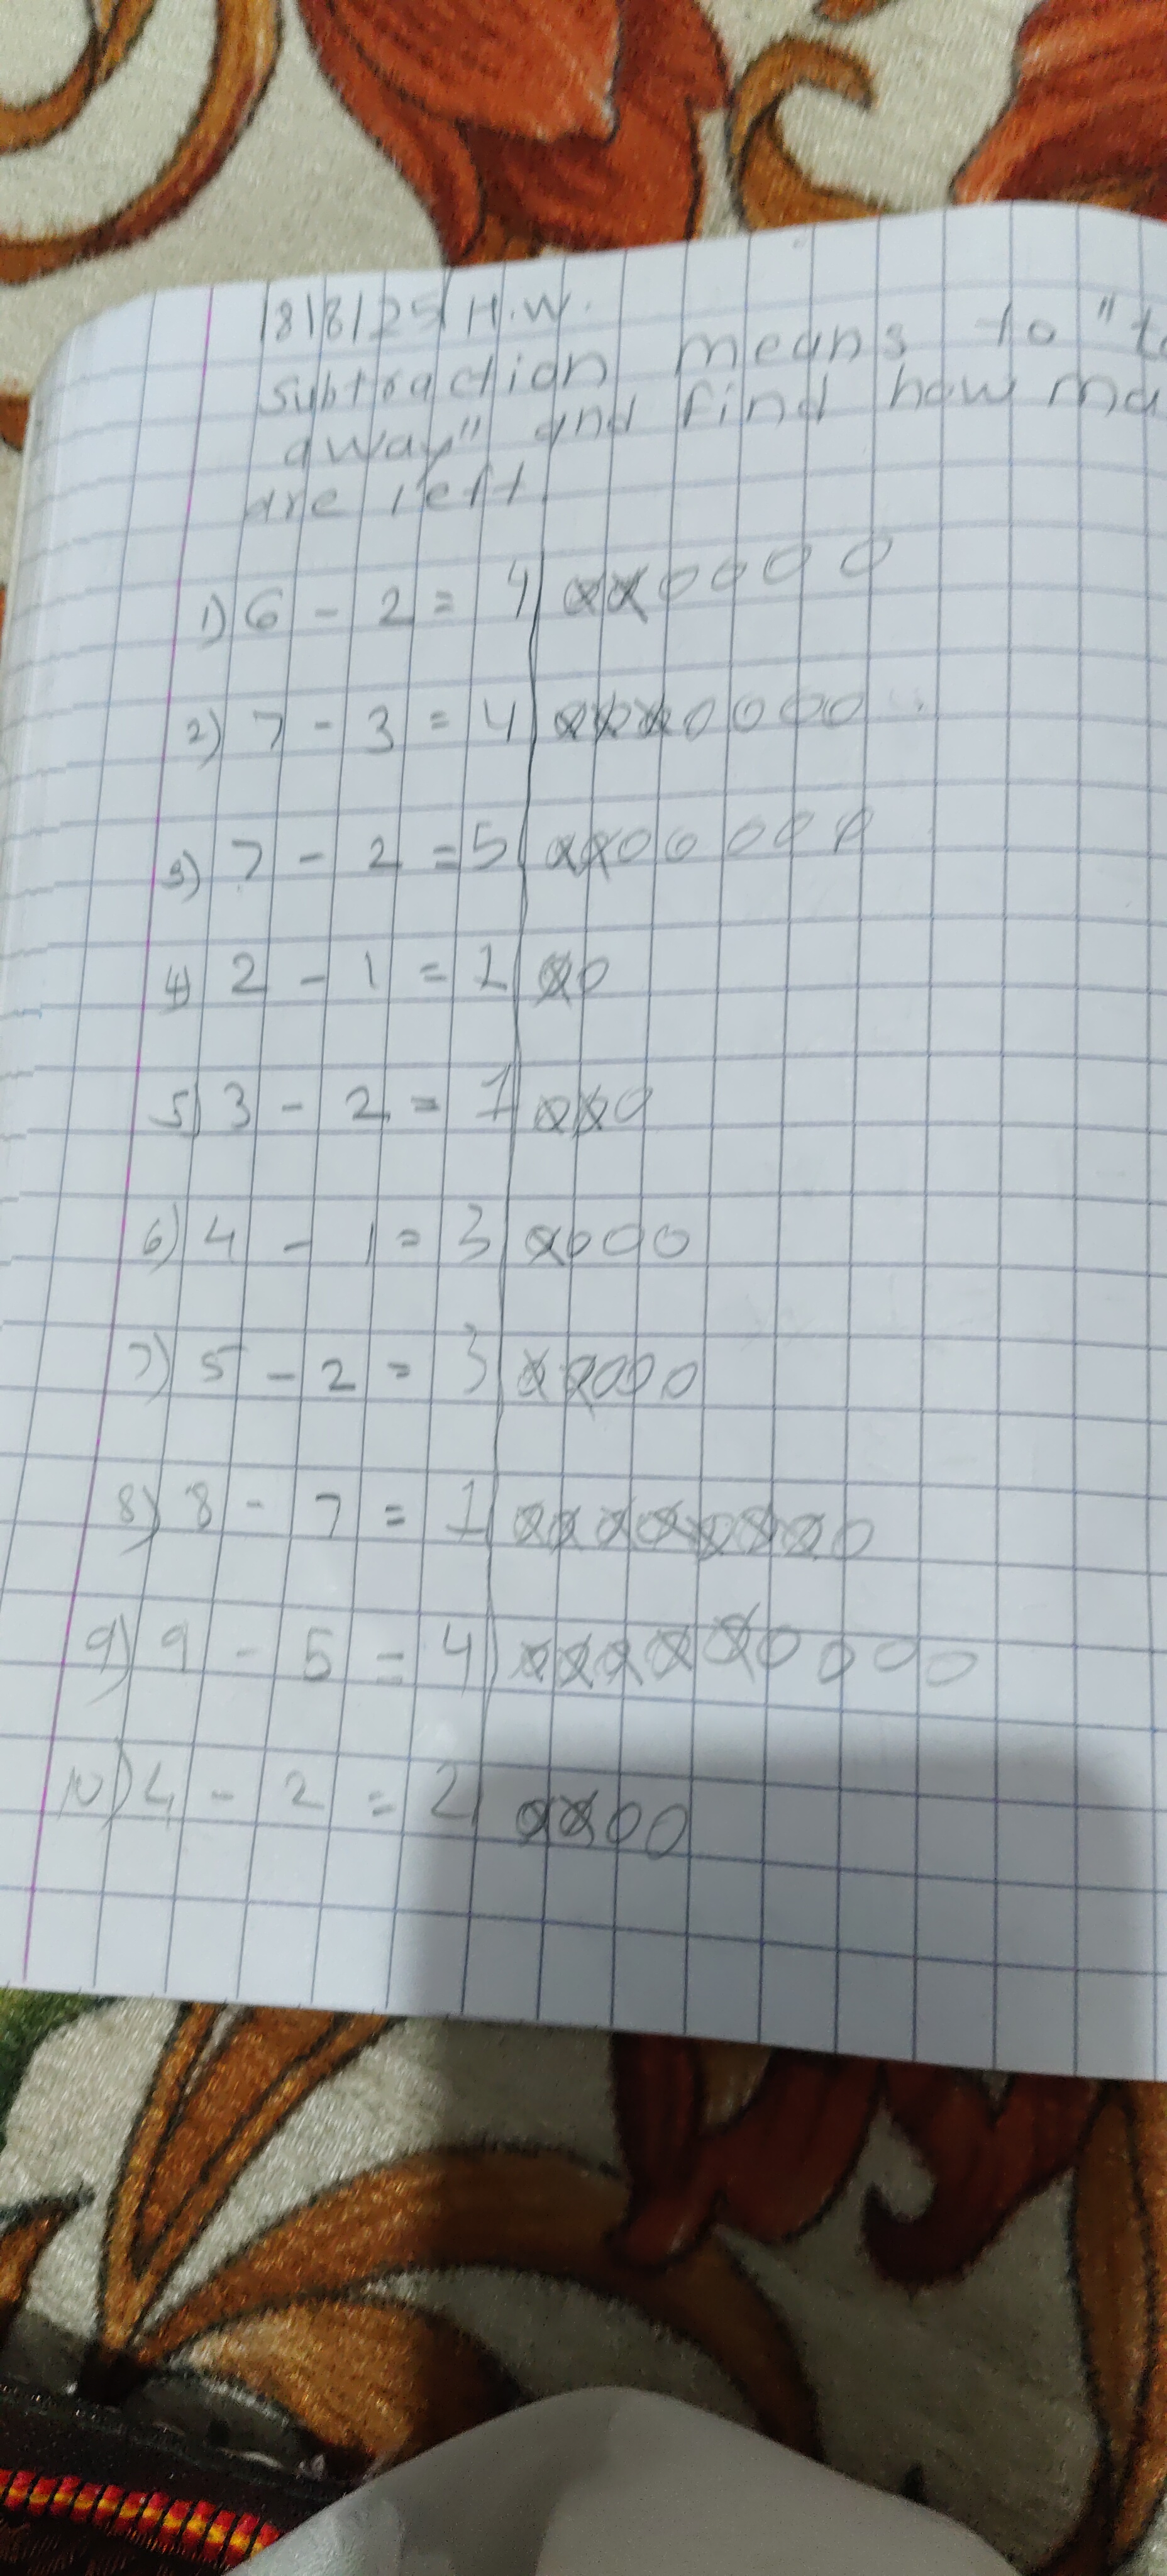 18/8/25 H.W.
Subtraction means to "t
away" and find how ma
are left.
1) 6 - 2 = 4 ⊗⊗0000
2) 7 - 3 = 4 ⊗⊗⊗0000
3) 7 - 2 = 5 ⊗⊗00000
4) 2 - 1 = 1 ⊗0
5) 3 - 2 = 1 ⊗⊗0
6) 4 - 1 = 3 ⊗000
7) 5 - 2 = 3 ⊗⊗000
8) 8 - 7 = 1 ⊗⊗⊗⊗⊗⊗⊗0
9) 9 - 5 = 4 ⊗⊗⊗⊗⊗0000
10) 4 - 2 = 2 ⊗⊗00